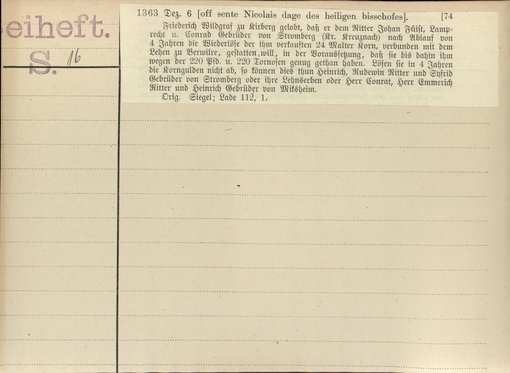 eiheft.
S. 16
1363 Dez. 6 [off sente Nicolais dage des heiligen bisschofes]. [74
Friederich Wildgraf zu Kirberg gelobt, daß er dem Ritter Johan Fülst, Lamp-
recht u. Conrad Gebrüder von Stromberg (Kr. Kreuznach) nach Ablauf von
4 Jahren die Wiederlöse der ihm verkauften 24 Malter Korn, verbunden mit dem
Lehen zu gestatten will, in der Voraussetzung, daß sie bis dahin ihm
wegen der 220 Pfd. u. 220 Tornosen genug gethan haben. Lösen sie in 4 Jahren
die Korngulden nicht ab, so können dies thun Heinrich, Rudewin Ritter und Syfrid
Gebrüder von Stromberg oder ihre Lehnserben oder Herr Conrat, Herr Emmerich
Ritter und Heinrich Gebrüder von
Orig. Siegel; Lade 112, 1.